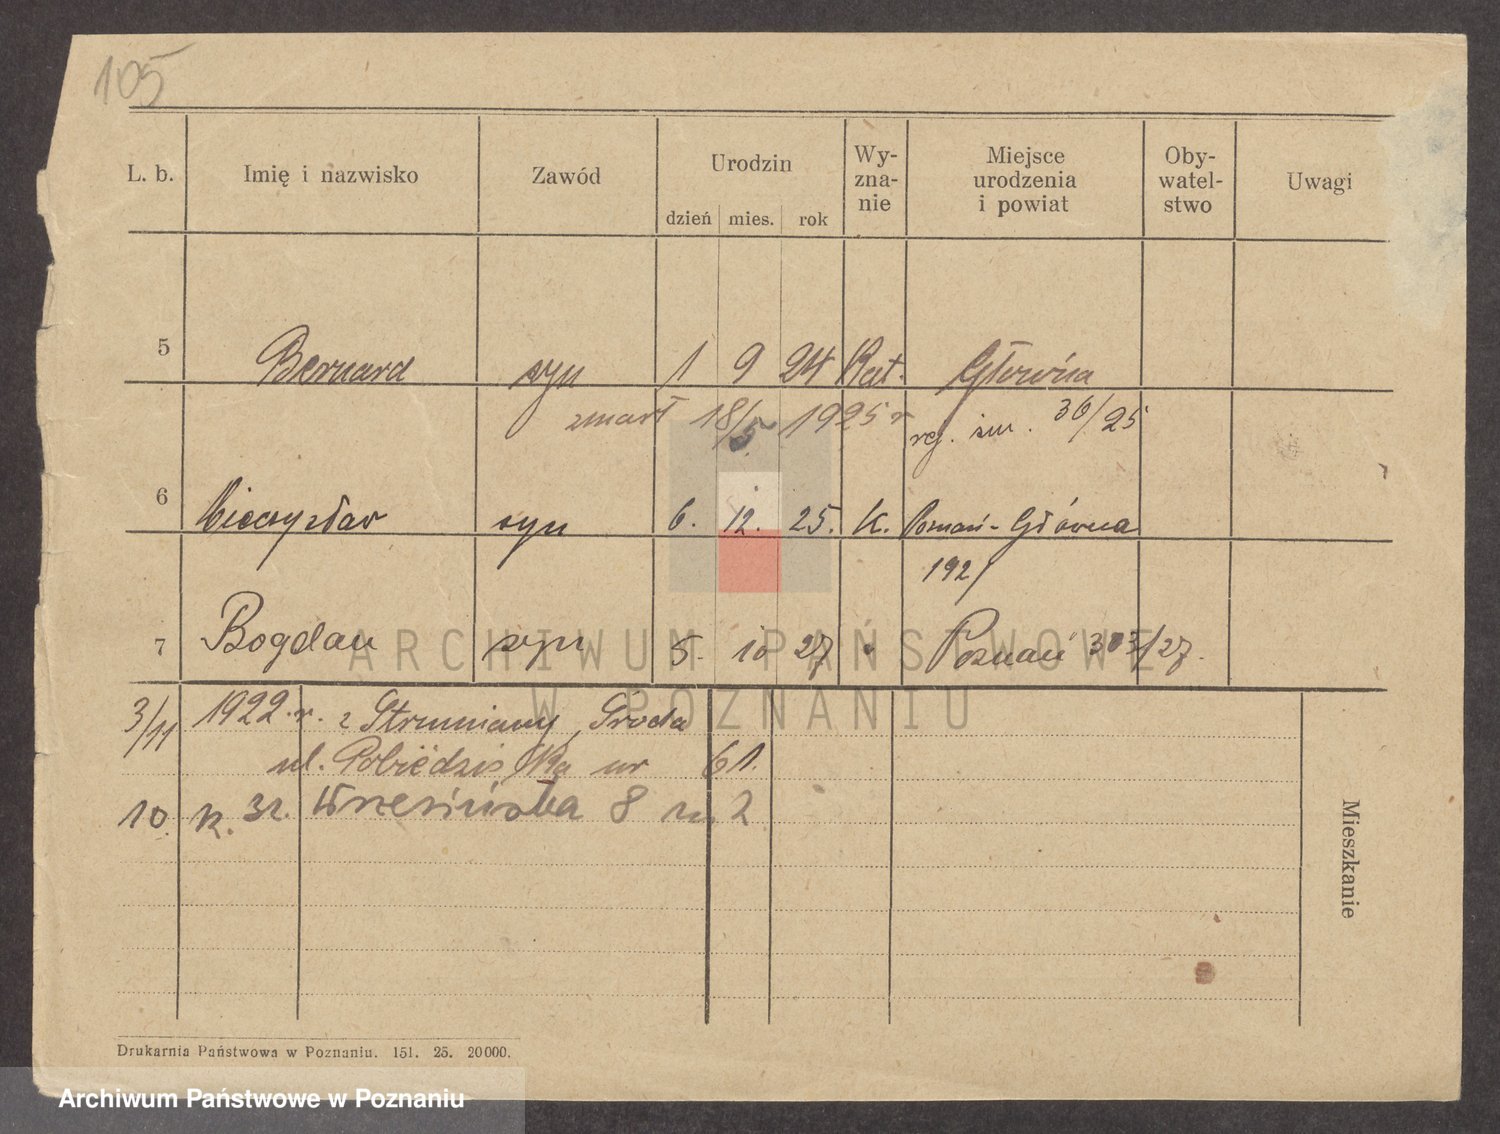 105
L. b. Imię i nazwisko Zawód Urodzin Wy-zna-nie Miejsce urodzenia i powiat Oby-watel-stwo Uwagi
dzień mies. rok
5 Bernard syn 1 9 24 Kat. Główna
zmarł 18/5 1925 r reg. śm. 36/25
6 Mieczysław syn 6. 12. 25. K. Poznań-Główna
192/
7 Bogdan syn 5. 10 27 Poznań 303/27.
ARCHIWUM PAŃSTWOWE
W POZNANIU
3/11 1922.r. z Strumiany, Środa
ul. Pobiedziska nr 61.
10. k. 32. Wrzesińska 8 m. 2
Mieszkanie
Drukarnia Państwowa w Poznaniu. 151. 25. 20000.
Archiwum Państwowe w Poznaniu